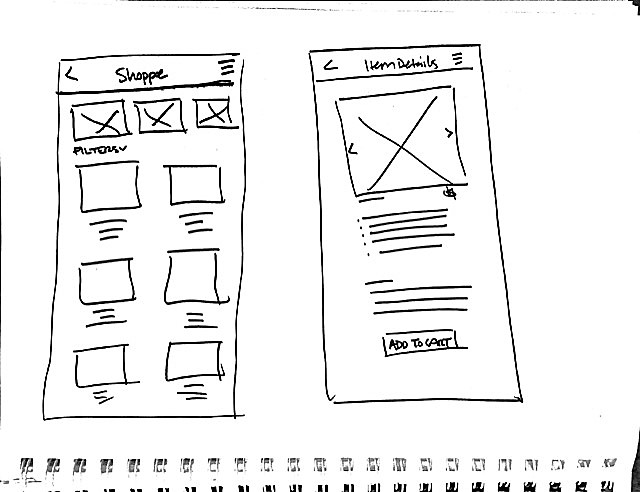 < Shoppe
FILTERS ∨
< Item Details
< >
$
ADD TO CART